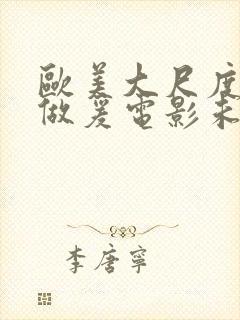 歐美大尺度
做爰電影未
李唐寧